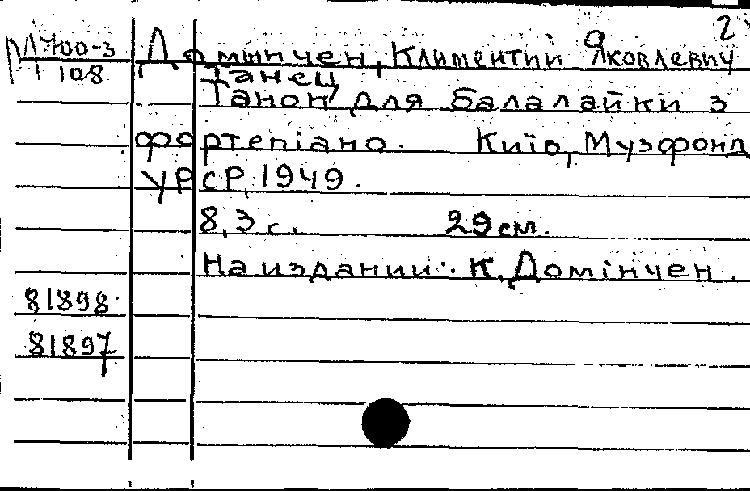 2
М700-3 Доминчен, Климентий Яковлевич
1108 Танец
Танок для балалайки з
фортепіано. Київ, Музфонд
УРСР, 1949.
8, 3 с. 29 см.
На издании: К. Домінчен.
81898
81897